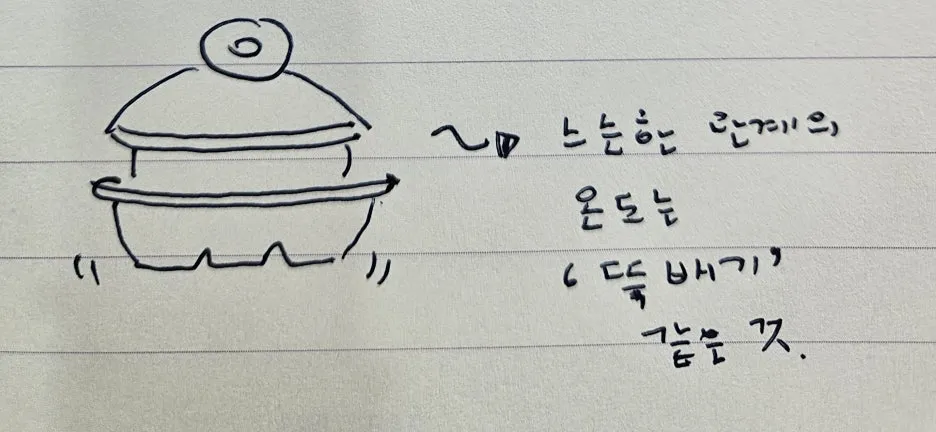 느슨한 관계의
온도는
'뚝배기'
같은 것.